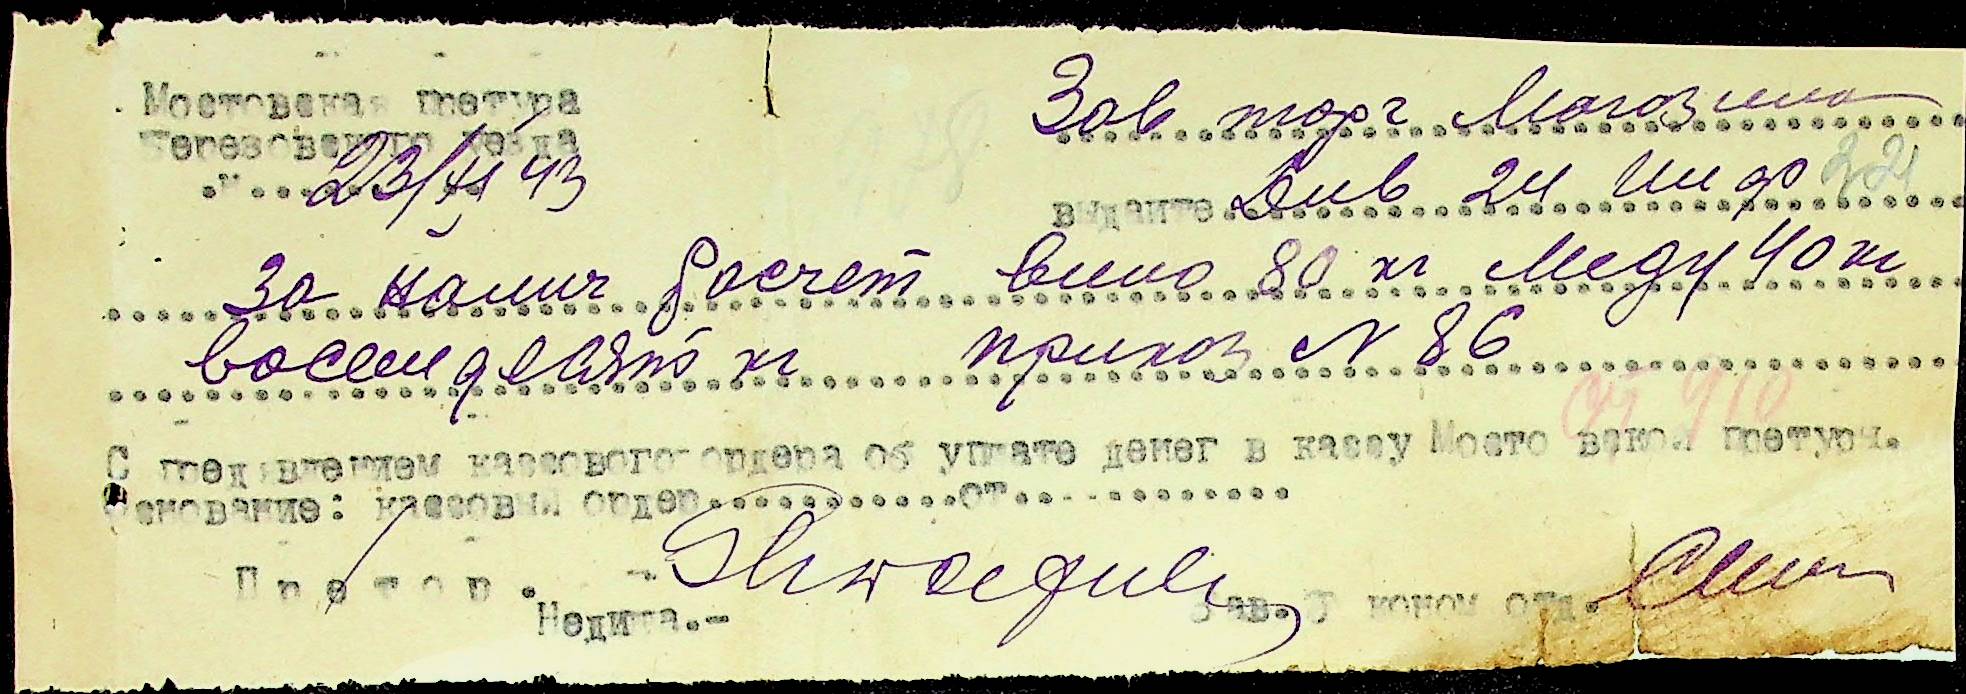 Мостовская претура
Березовского уезда
23/XI 43
Зав торг Магазина
выдайте Див 24 Инф 321
За налич расчет вино 80 кг Меду 40 кг
восемдесят кг приказ N 86
С пред'явлением кассового ордера об уплате денег в кассу Мостовской претуры.
Основание: кассовый ордер...........от..............
Претор. -
Недита.-
Зав. Эконом отд.